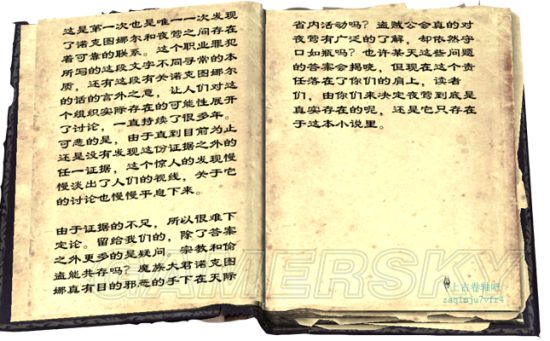 这是第一次也是唯一一次发现
了诺克图娜尔和夜莺之间存在
着可靠的联系。这个职业罪犯
所写的这段文字不同寻常的本
质，还有这段有关诺克图娜尔
的话的言外之意，让人们对这
个组织实际存在的可能性展开
了讨论，一直持续了很多年。
可悲的是，由于直到目前为止
还是没有发现这份证据之外的
任一证据，这个惊人的发现慢
慢淡出了人们的视线，关于它
的讨论也慢慢平息下来。
由于证据的不足，所以很难下
定论。留给我们的，除了答案
之外更多的是疑问。宗教和偷
盗能共存吗？魔族大君诺克图
娜真有目的邪恶的手下在天际
省内活动吗？盗贼公会真的对
夜莺有广泛的了解，却依然守
口如瓶吗？也许某天这些问题
的答案会揭晓，但现在这个责
任落在了你们的肩上，读者
们，由你们来决定夜莺到底是
真实存在的呢，还是它只存在
于这本小说里。
GAMERSKY
上古卷轴吧
zaq1mju7vfr4